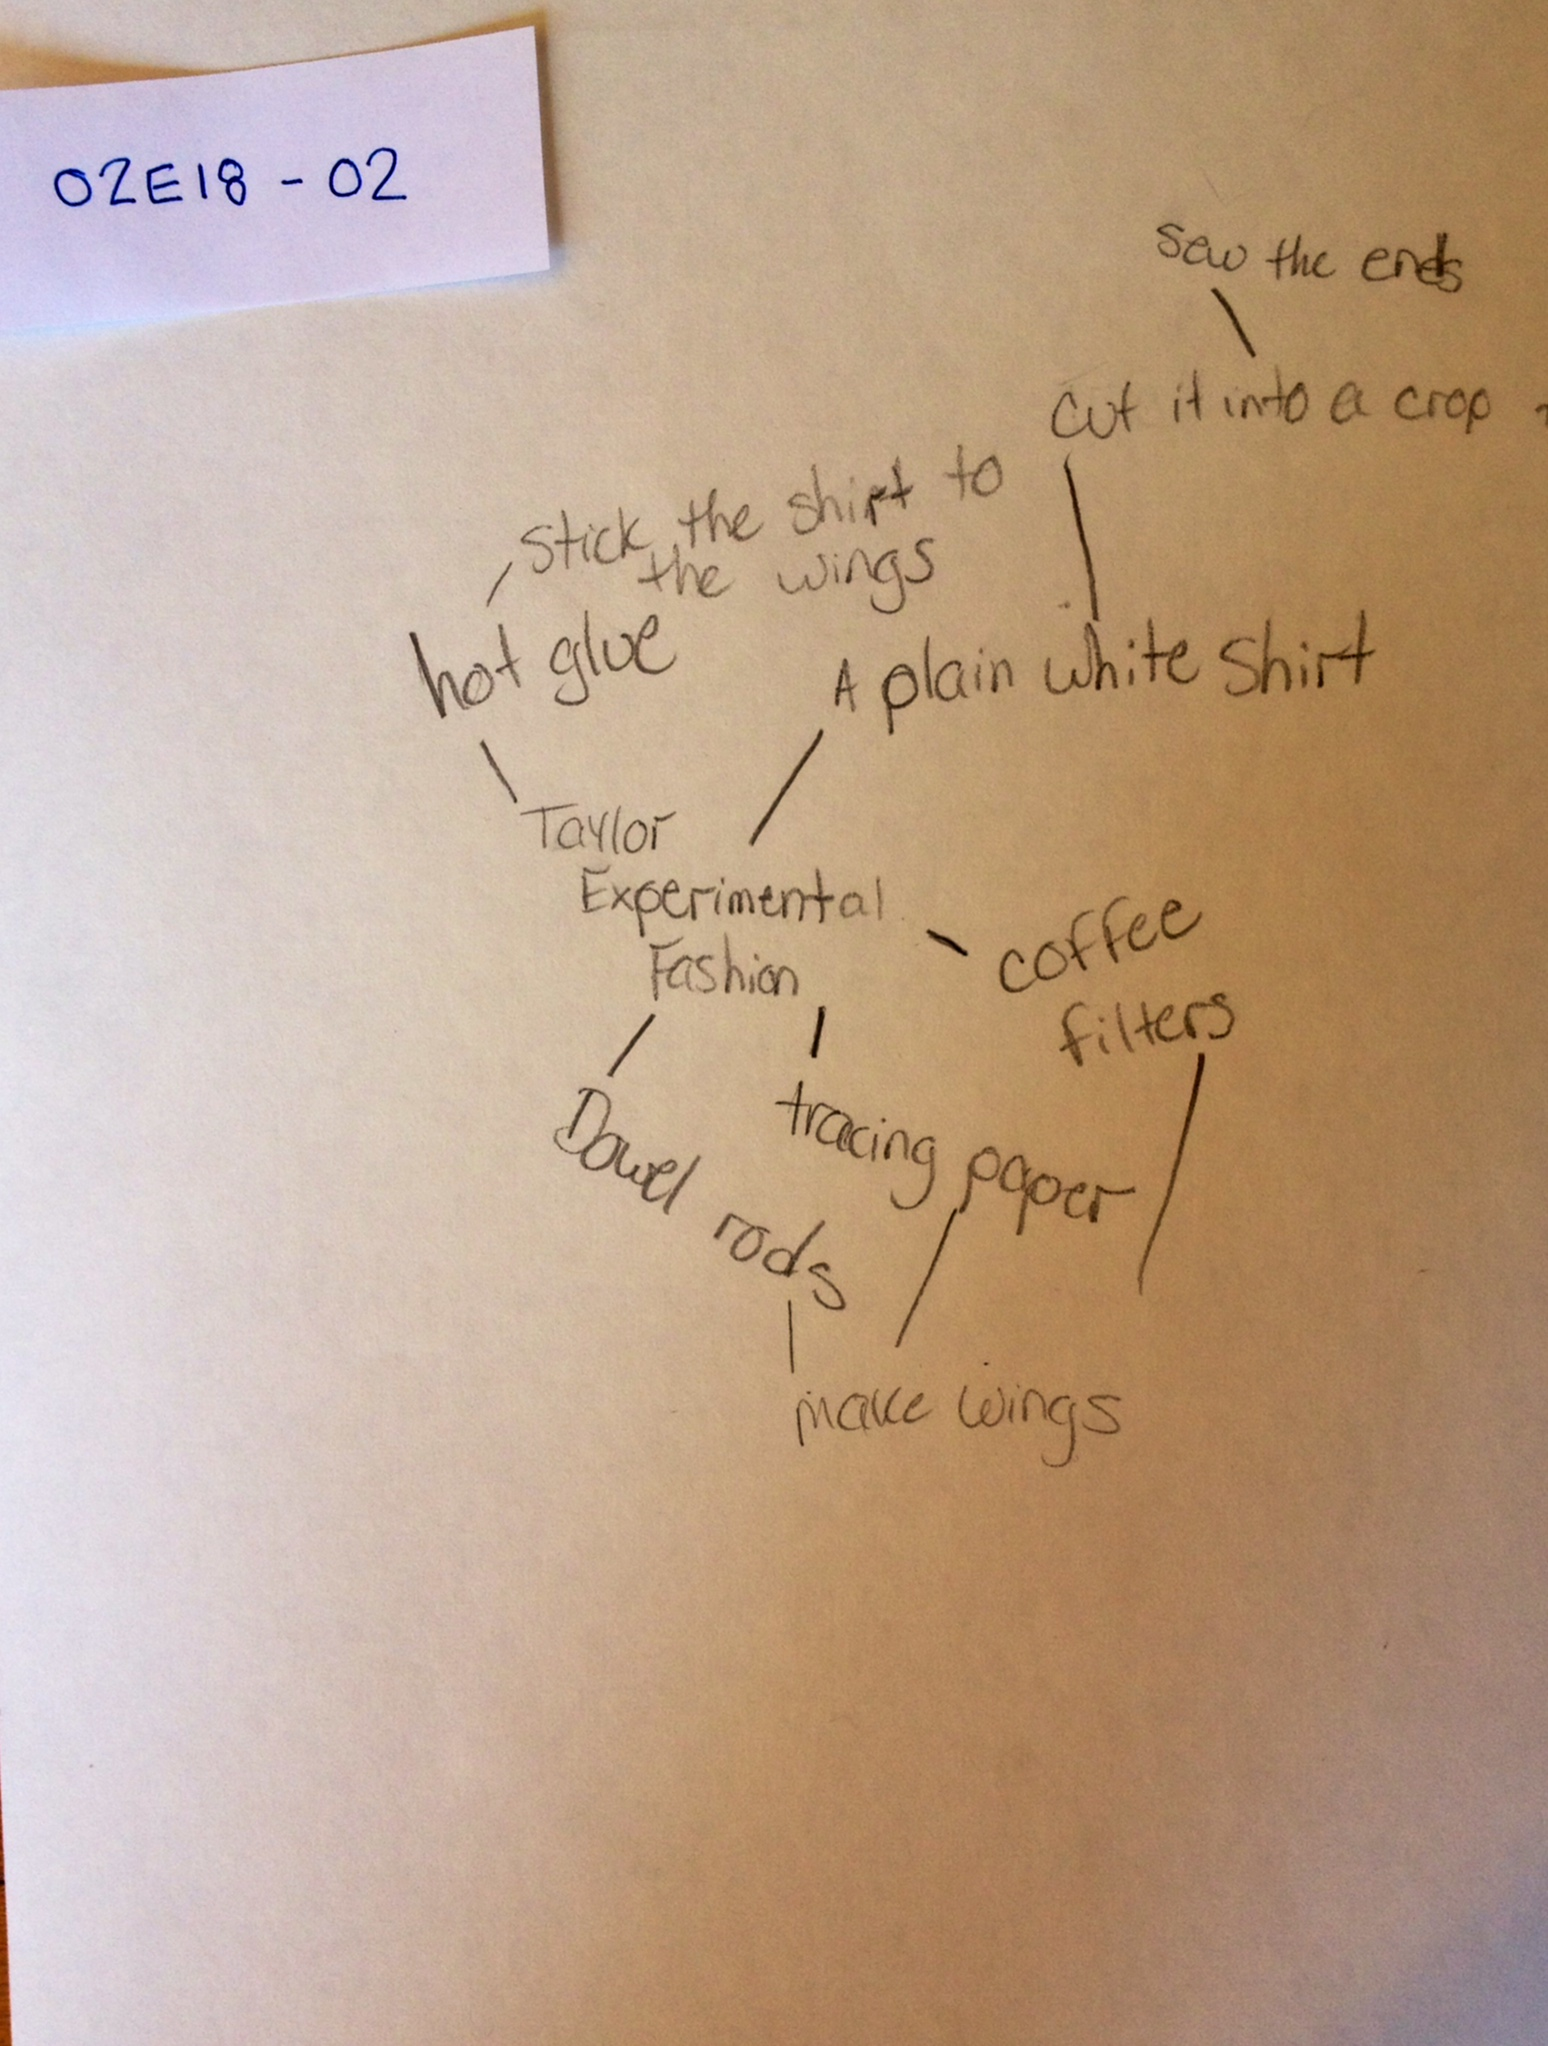 02E18 - 02
sew the ends
cut it into a crop
stick the shirt to
the wings
hot glue
A plain white shirt
Taylor
Experimental
Fashion
coffee
filters
tracing paper
Dowel rods
make wings